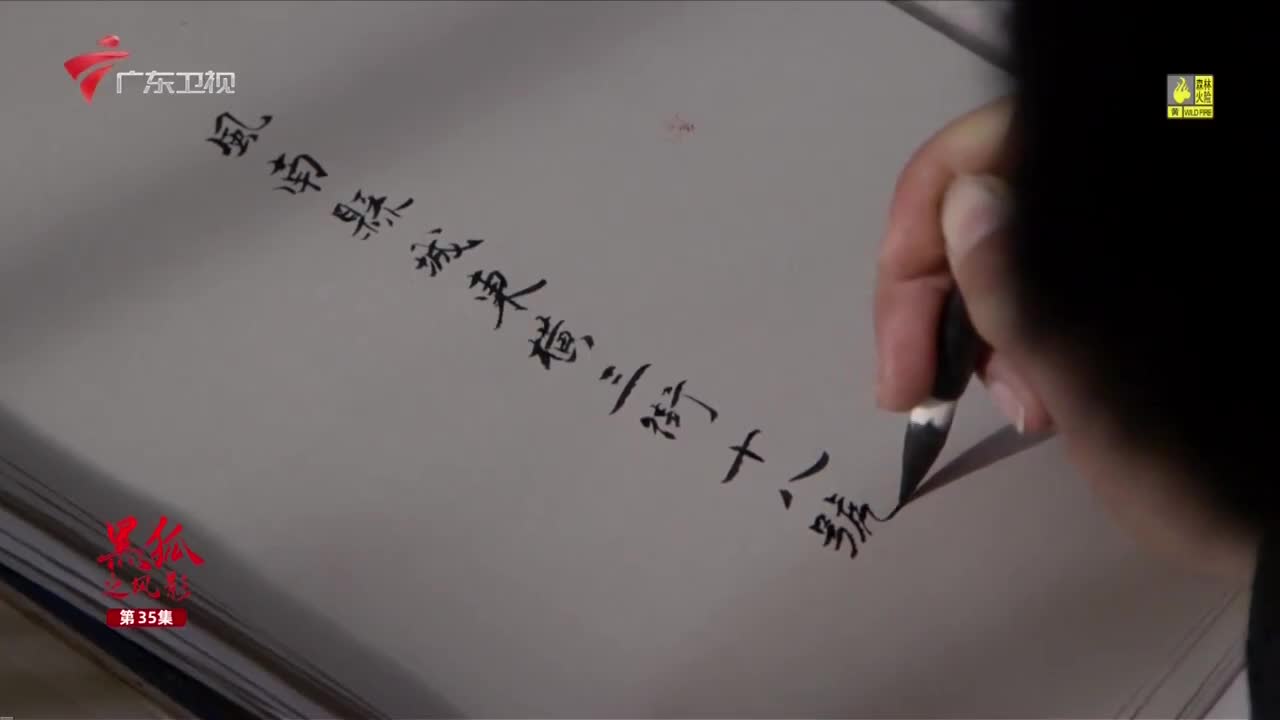 广东卫视
森林
火险
黄 WILD FIRE
風南縣城東橫三街十八號
黑狐
之风影
第35集